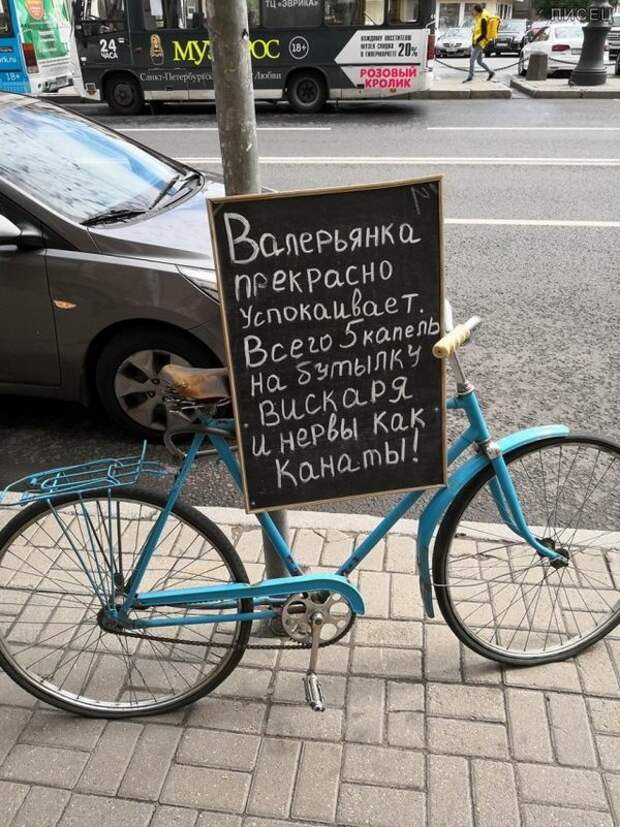 ПИСЕЦ
ТЦ «ЭВРИКА»
24
ЧАСА
18+
18+
Санкт-Петербург
КАЖДОМУ ПОСЕТИТЕЛЮ
МУЗЕЯ СКИДКА
В ГИПЕРМАРКЕТЕ 20%
РОЗОВЫЙ
КРОЛИК
Валерьянка
прекрасно
успокаивает.
Всего 5 капель
на бутылку
вискаря
и нервы как
канаты!